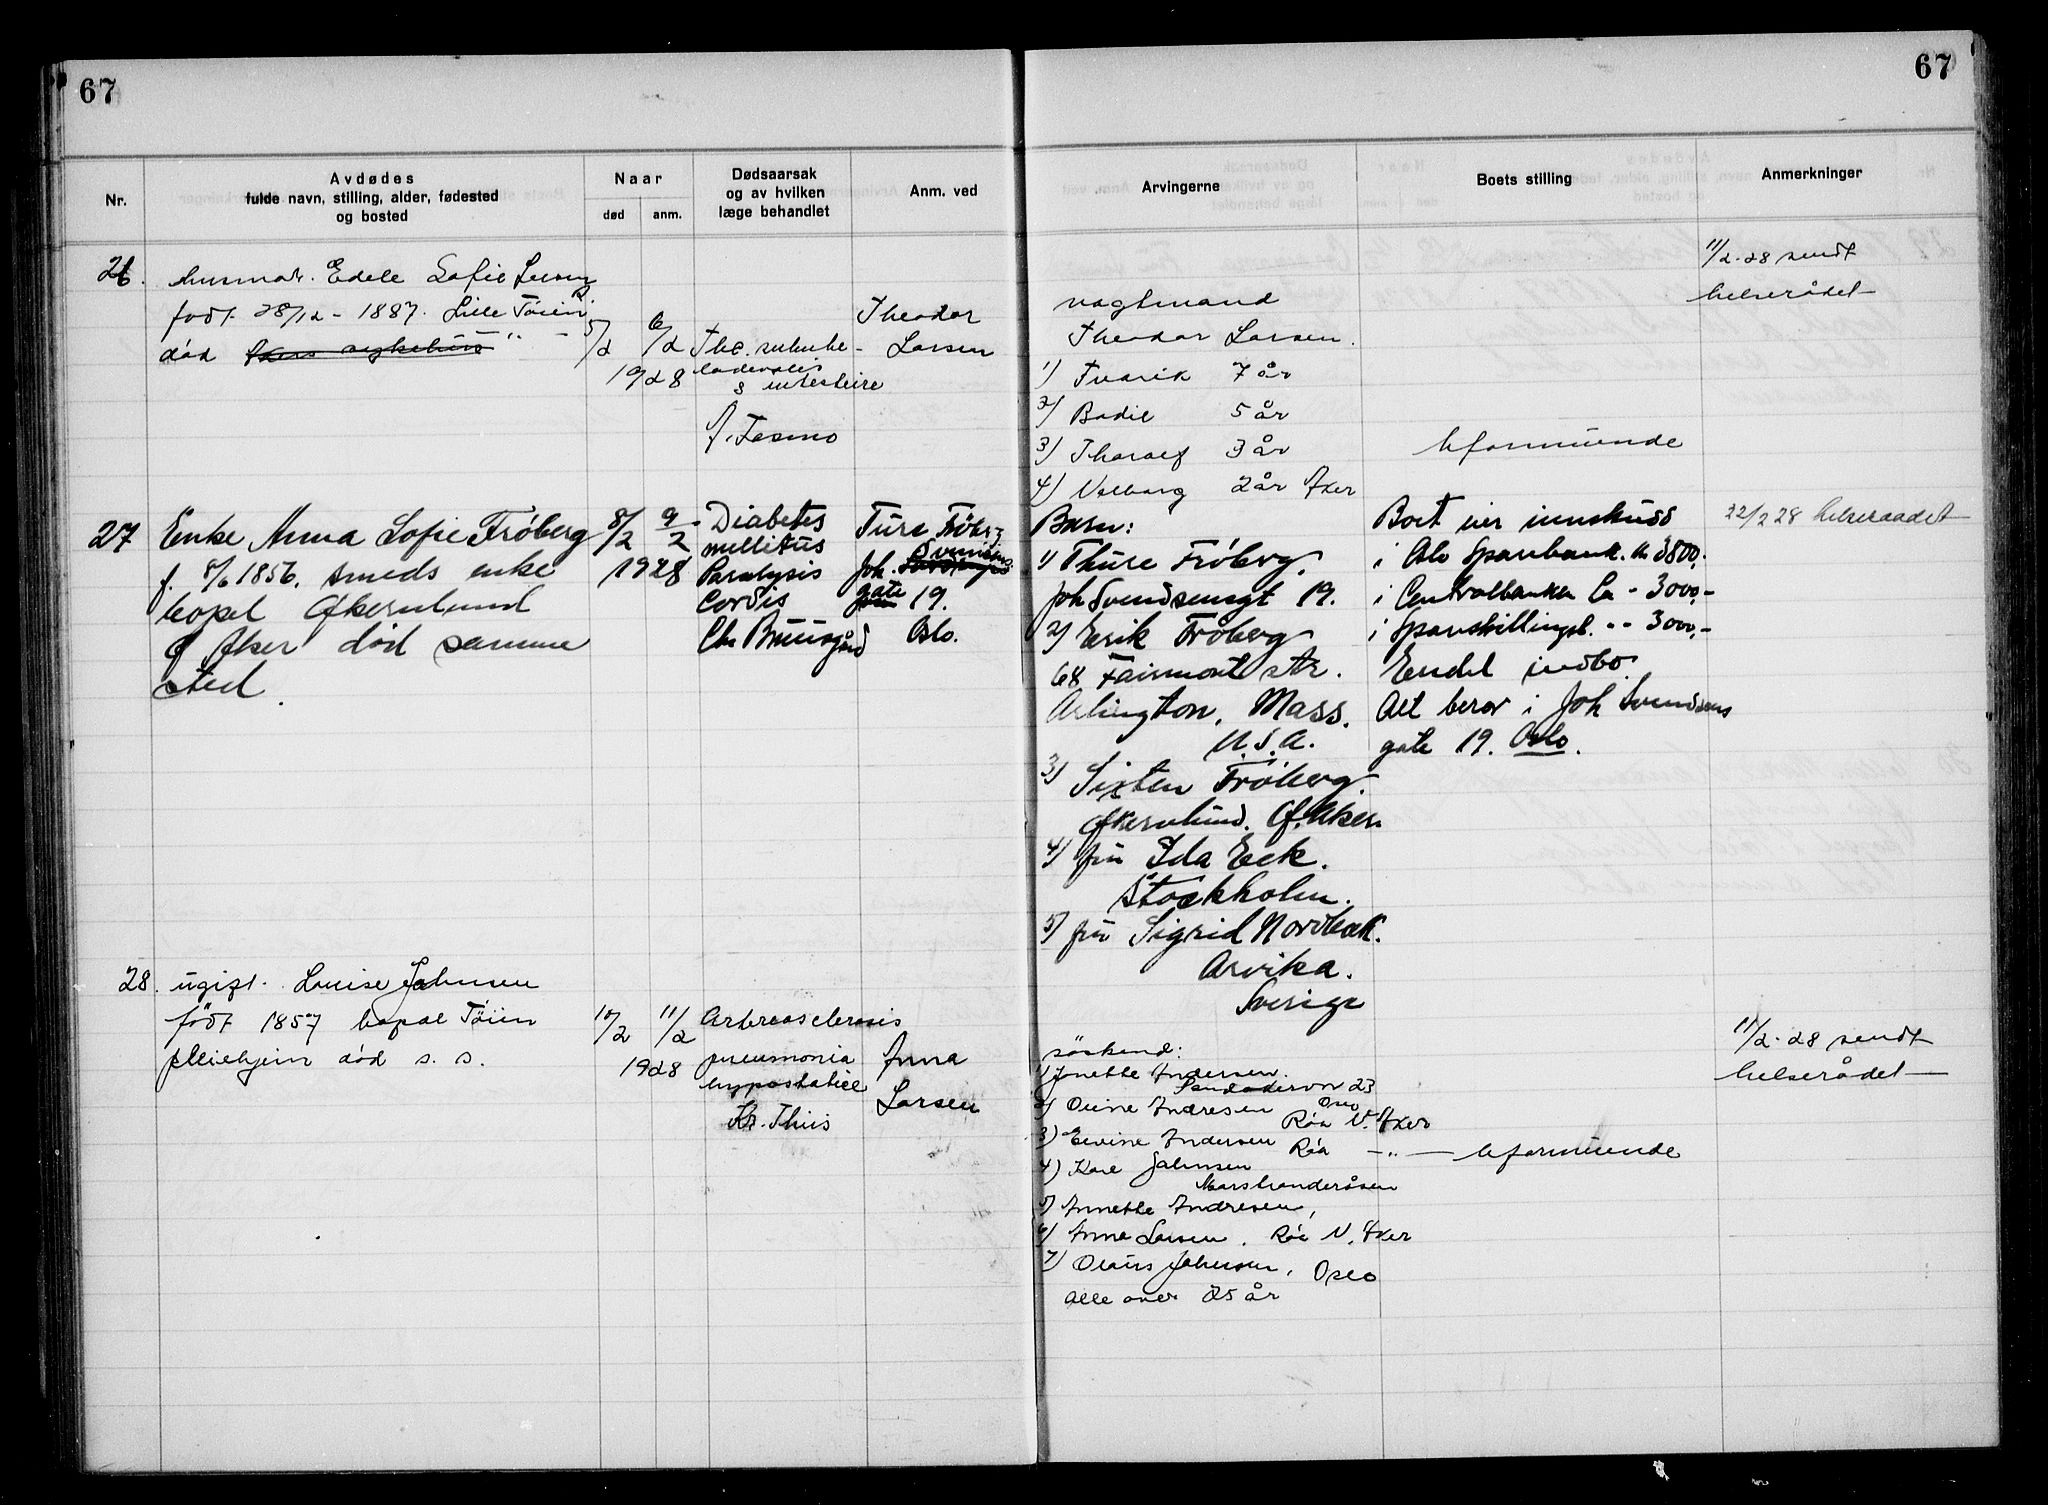 67
67
Nr.
Avdødes
fulde navn, stilling, alder, fødested
og bosted
Naar
død
anm.
Dødsaarsak
og av hvilken
læge behandlet
Anm. ved
Arvingerne
Boets stilling
Anmerkninger
26.
husmor. Edele Sofie
født 28/12 - 1887. Lille Tøien
død Akers sykehus " -
5/2 6/2
1928
Tbc.
& intestine
Theodor
Larsen
vagtmand
Theodor Larsen.
1) 7 år
2) Bodil 5 år
3) Thoralf 3 år
4) Valborg 2 år Aker
Uformuende
11/2-28 sendt
helserådet
27
Enke Anna Sofie Frøberg
f. 8/6 1856. smeds enke
bopel Økernlund
Ø Aker død samme
sted.
8/2 9/2
1928
Diabetes
mellitus
Paralysis
Cordis
Chr Bruusgård
Ture Frøberg
Joh. Svendsens
gate 19.
Oslo.
Barn:
1) Thure Frøberg.
Joh Svendsensgt 19.
2) Erik Frøberg
68 Fairmont str.
Arlington, Mass.
U.S.A.
3) Sixten Frøberg.
Økernlund. Ø. Aker.
4) fru Ida Eek.
Stockholm.
5) fru Sigrid Nordbak.
Arvika.
Sverige
Boet eier innskudd
i Oslo Sparebank. Kr 3800,-
i Centralbanken Ca - 3000,-
i Spareskillingsb. " - 3000,-
Endel indbo.
Alt beror i Joh Svendsens
gate 19. Oslo.
22/2 28 helseraadet
28.
ugift. Louise Johnsen
født 1857 bopæl Tøien
pleiehjem død s. s.
10/2 11/2
1928
Arteriosclerosis
pneumonia
hypostatica
Kr. Thiis
Anna
Larsen
søskend:
1) Jonette Andersen.
23
Oslo
2) Oline Andresen Røa V. Aker
3) Elvine Andersen Røa - " -
4) Karl Johnsen
5) Annette Andresen,
6) Anna Larsen. Røa V. Aker
7) Olaus Johnsen, Oslo
Alle over 25 år
Uformuende
11/2-28 sendt
helserådet